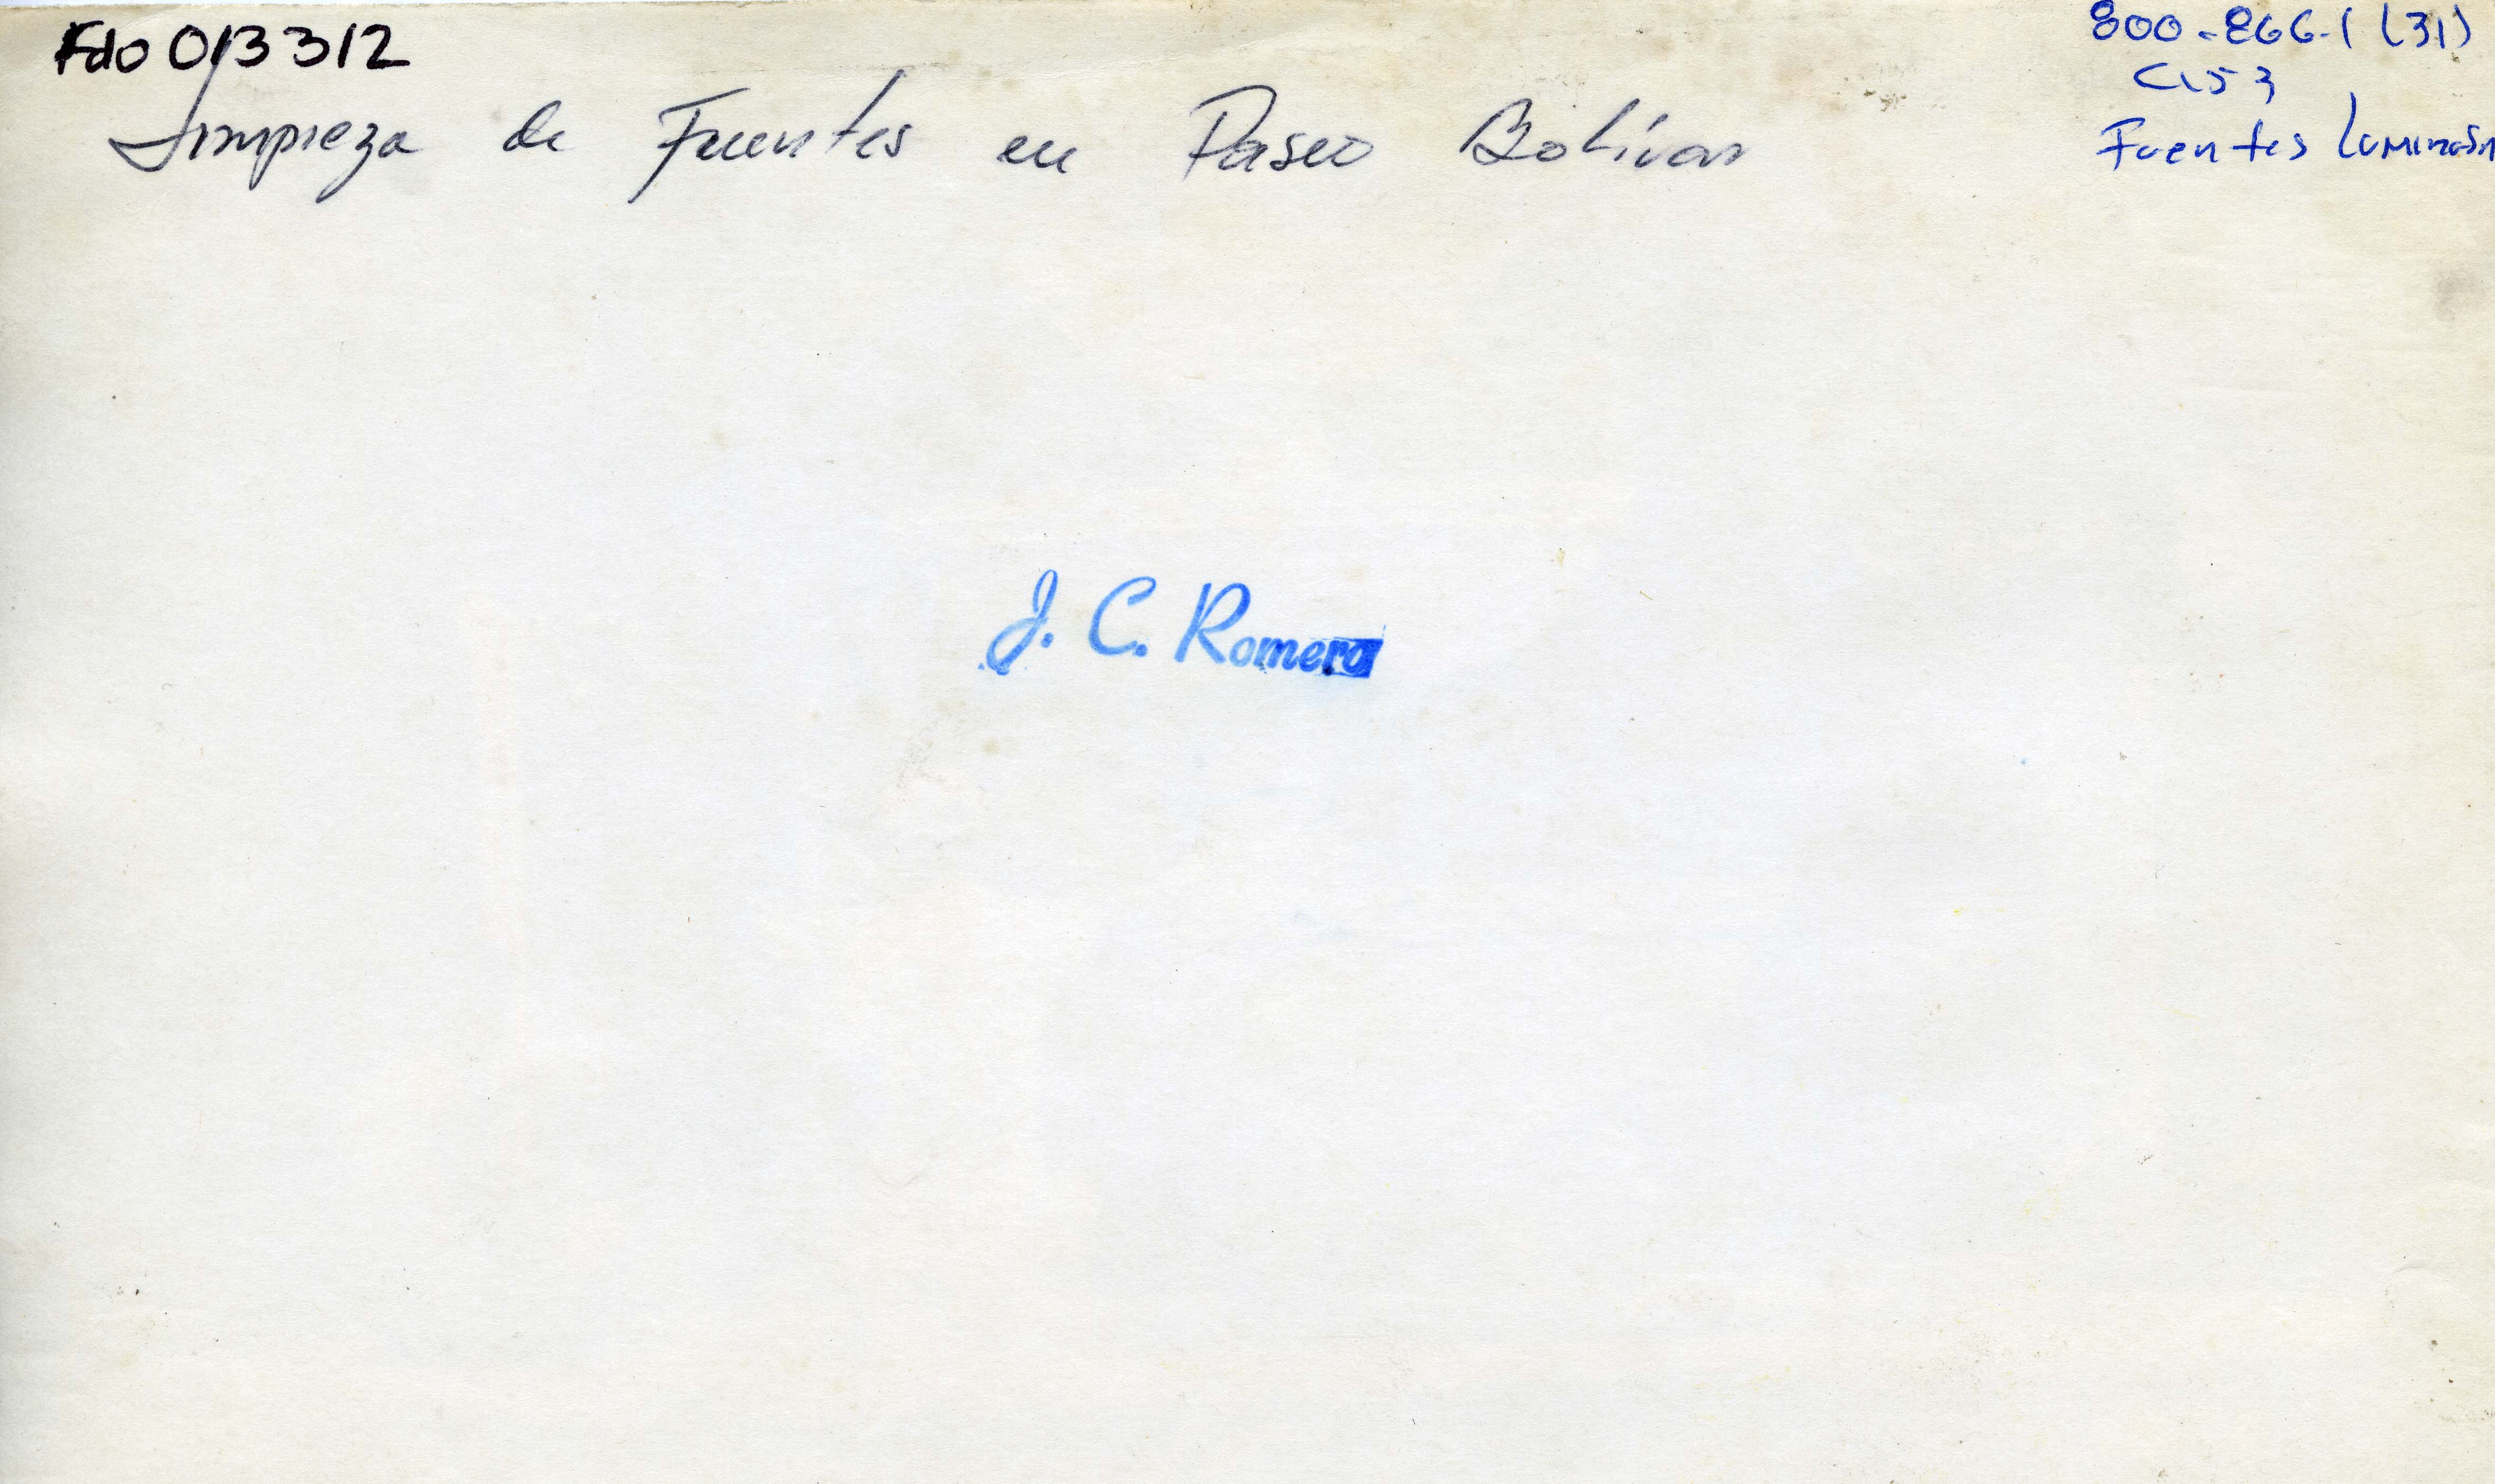 Fdo 013312
800-866-1 (31)
C153
Limpieza de Fuentes en Paseo Bolívar
Fuentes
J. C. Romero